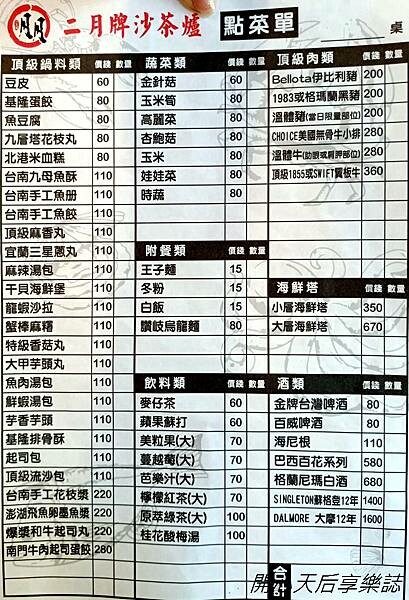 二月牌沙茶爐 點菜單 桌
頂級鍋料類 價錢 數量
豆皮 60
基隆蛋餃 60
魚豆腐 80
九層塔花枝丸 80
北港米血糕 80
台南九母魚酥 110
台南手工魚册 110
台南手工魚餃 110
頂級麻香丸 110
宜蘭三星蔥丸 110
麻辣湯包 110
干貝海鮮堡 110
龍蝦沙拉 110
蟹棒麻糬 110
特級香菇丸 110
大甲芋頭丸 110
魚肉湯包 110
鮮蝦湯包 110
芋香芋頭 110
基隆排骨酥 110
起司包 110
頂級流沙包 110
台南手工花枝漿 220
澎湖飛魚卵墨魚漿 220
爆漿和牛起司丸 220
南門牛肉起司蛋餃 280
蔬菜類 價錢 數量
金針菇 60
玉米筍 80
高麗菜 80
杏鮑菇 80
玉米 80
娃娃菜 80
時蔬 80
附餐類 價錢 數量
王子麵 15
冬粉 15
白飯 15
讚岐烏龍麵 80
飲料類 價錢 數量
麥仔茶 60
蘋果蘇打 60
美粒果(大) 70
蔓越莓(大) 70
芭樂汁(大) 70
檸檬紅茶(大) 70
原萃綠茶(大) 100
桂花酸梅湯 100
頂級肉類 價錢 數量
Bellota伊比利豬 200
1983或格瑪蘭黑豬 200
溫體豬(當日限量部位) 200
CHOICE美國無骨牛小排 280
溫體牛(肋眼或肩胛部位) 280
頂級1855或SWIFT翼板牛 360
海鮮塔 價錢 數量
小層海鮮塔 350
大層海鮮塔 670
酒類 價錢 數量
金牌台灣啤酒 80
百威啤酒 80
海尼根 110
巴西百花系列 580
格蘭尼瑪白酒 680
SINGLETON蘇格登12年 1400
DALMORE 大摩12年 1600
合計
天后享樂誌